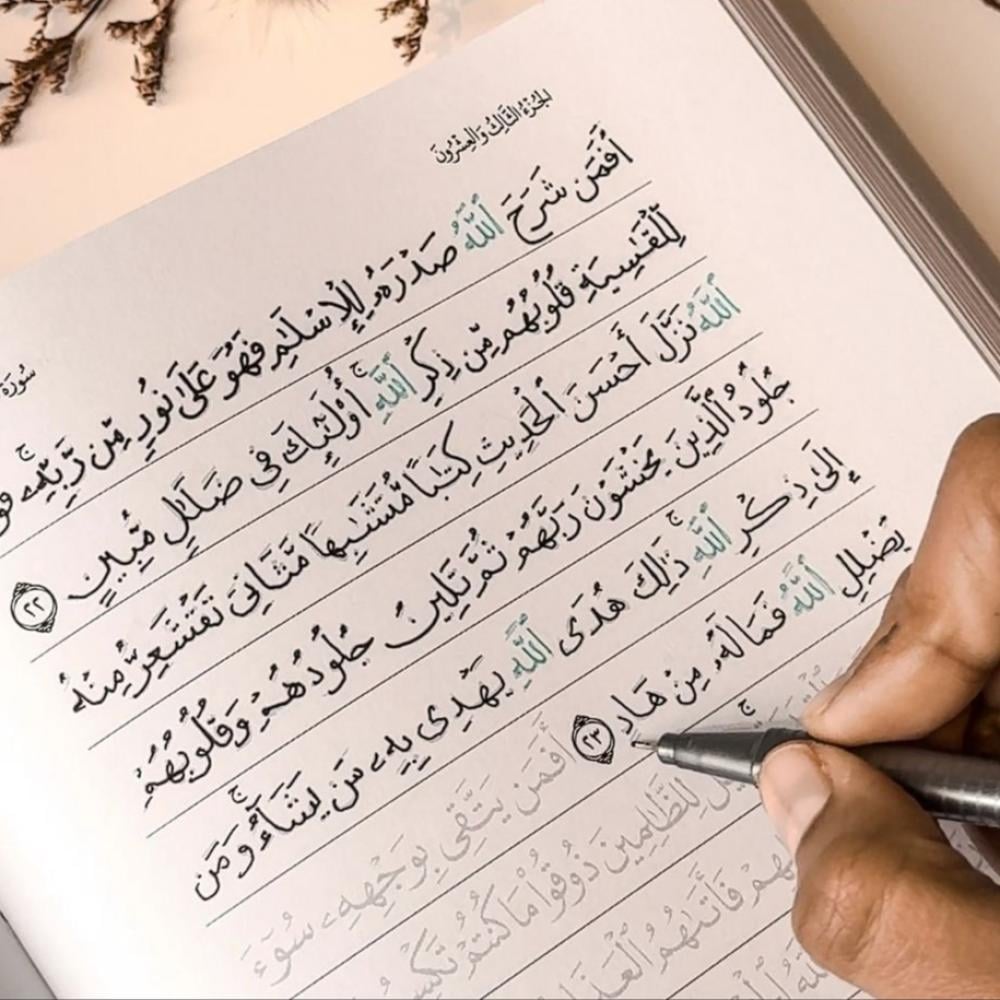 الجزء الثالث والعشرون
سورة
أَفَمَن شَرَحَ ٱللَّهُ صَدْرَهُۥ لِلْإِسْلَٰمِ فَهُوَ عَلَىٰ نُورٍ مِّن رَّبِّهِۦ ۚ
لِّلْقَٰسِيَةِ قُلُوبُهُم مِّن ذِكْرِ ٱللَّهِ ۚ أُو۟لَٰٓئِكَ فِى ضَلَٰلٍ مُّبِينٍ ٢٢
ٱللَّهُ نَزَّلَ أَحْسَنَ ٱلْحَدِيثِ كِتَٰبًا مُّتَشَٰبِهًا مَّثَانِىَ تَقْشَعِرُّ مِنْهُ
جُلُودُ ٱلَّذِينَ يَخْشَوْنَ رَبَّهُمْ ثُمَّ تَلِينُ جُلُودُهُمْ وَقُلُوبُهُمْ
إِلَىٰ ذِكْرِ ٱللَّهِ ۚ ذَٰلِكَ هُدَى ٱللَّهِ يَهْدِى بِهِۦ مَن يَشَآءُ ۚ وَمَن
يُضْلِلِ ٱللَّهُ فَمَا لَهُۥ مِنْ هَادٍ ٢٣ أَفَمَن يَتَّقِى بِوَجْهِهِۦ سُوٓءَ
لِلظَّٰلِمِينَ ذُوقُوا۟ مَا كُنتُمْ
فَأَتَىٰهُمُ